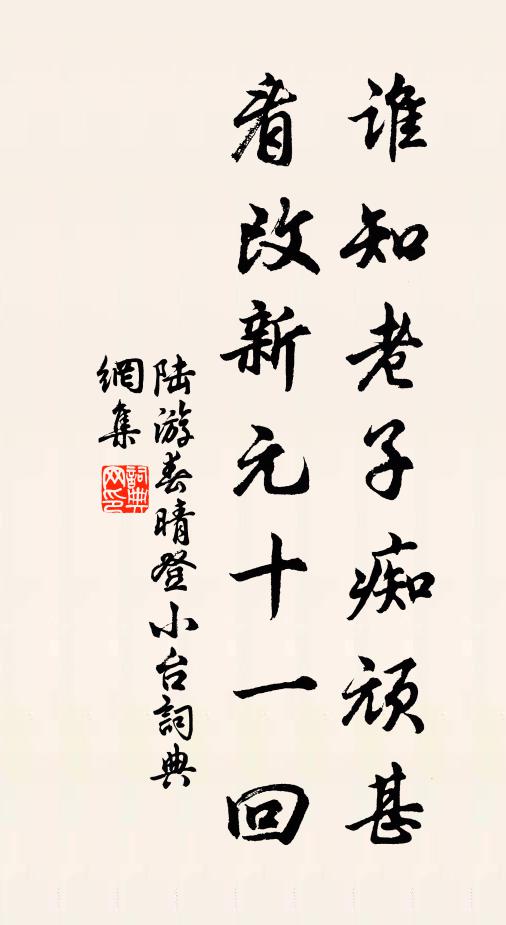 谁知老子痴顽甚
看改新元十一回
陆游春晴登小台詞典
網集
詞典網印